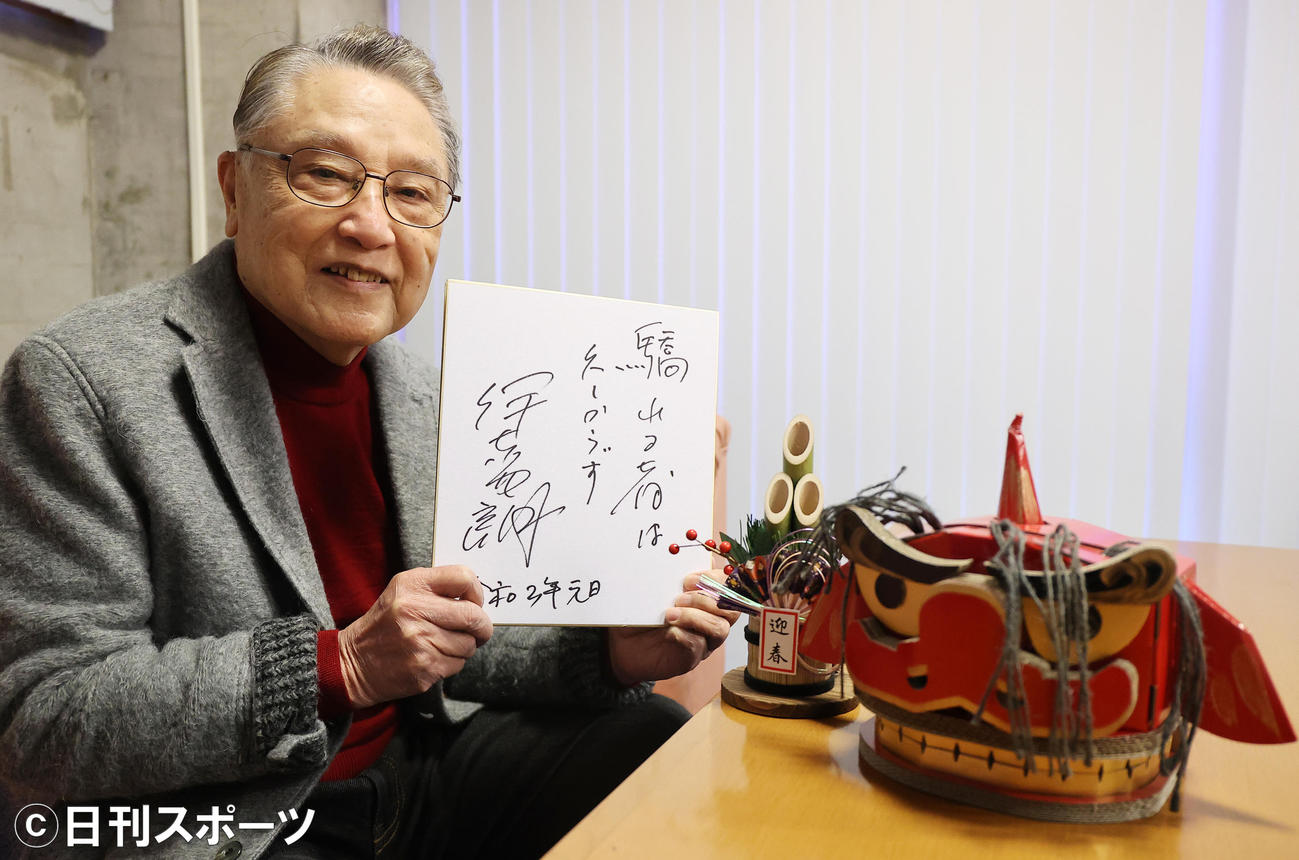 驕れる者は
久しからず
令和3年元日
迎春
©日刊スポーツ